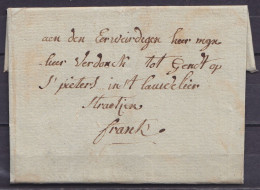 aen den Eerweirdigen heer myn
heer Verdonck tot Gendt op
St pieters in 't lauwelier
Straetien
frank